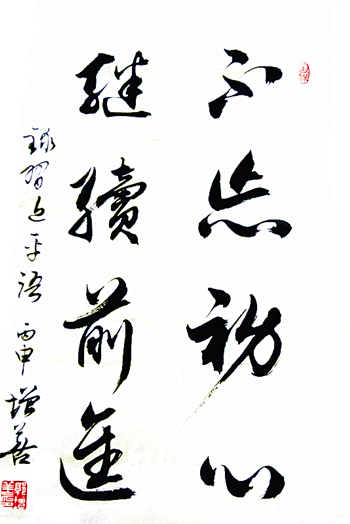 不忘初心
繼續前進
錄習近平語 丙申 增善